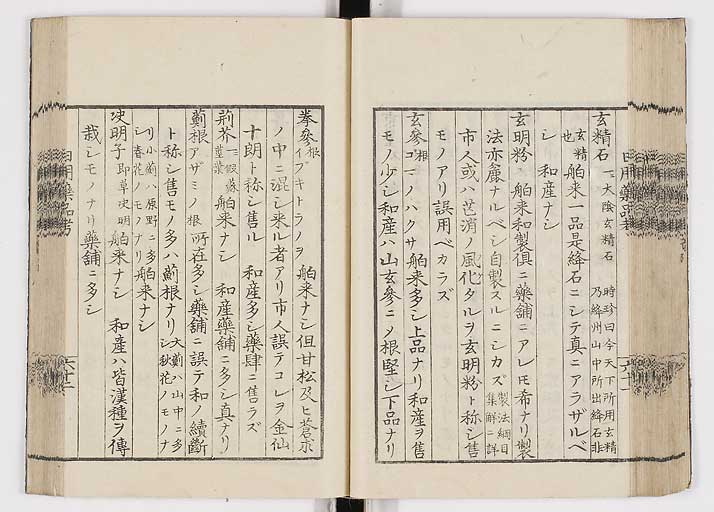 玄精石 一太陰玄精石 時珍曰今天下所用玄精乃絳州山中所出絳石非
玄精也 舶来一品是絳石ニシテ真ニアラザルベ
シ 和産ナシ
玄明粉 舶来和製俱ニ藥舖ニアレモ希ナリ製
法亦麁ナルベシ自製スルニシカズ 製法綱目集解ニ詳
市人或ハ芒消ノ風化タルヲ玄明粉ト称シ售
モノアリ誤用ベカラズ
玄參 ゴマノハクサ 舶来多シ上品ナリ和産ヲ售
モノ少シ和産ハ山玄參ニメ根堅シ下品ナリ
拳參 根 イブキトラノヲ 舶来ナシ但甘松及ヒ蒼朮
ノ中ニ混シ来ル者アリ市人誤テコレヲ金仙
十朗ト称シ售ル 和産多シ藥肆ニ售ラズ
荊芥 一假蘇 莖葉 舶来ナシ 和産藥舖ニ多シ真ナリ
薊根 アザミノ根 所在多シ藥舖ニ誤テ和ノ續斷
ト称シ售モノ多ハ薊根ナリ 大薊ハ山中ニ多シ秋花ノモノナ
リ小薊ハ原野ニ多シ春花ノモノナリ 舶来ナシ
决明子 即草决明 舶来ナシ 和産ハ皆漢種ヲ傳
栽シモノナリ藥舖ニ多シ
日用藥品考
六十一
日用藥品考